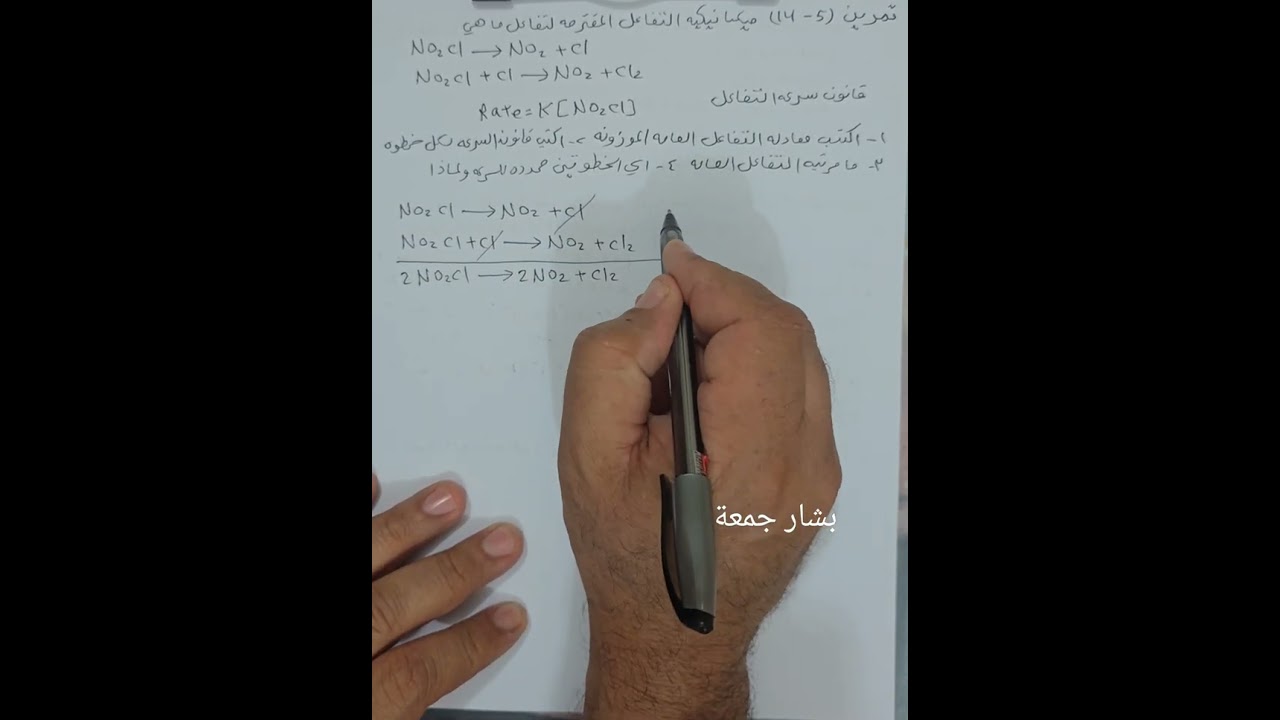 تمرين (5 - 14) ميكانيكيه التفاعل المقترحه لتفاعل ما هي
NO₂Cl → NO₂ + Cl
NO₂Cl + Cl → NO₂ + Cl₂
قانون سرعه التفاعل
Rate = K [NO₂Cl]
١- اكتب معادله التفاعل العامه الموزونه ٢- اكتب قانون السرعه لكل خطوه
٣- ما مرتبه التفاعل العامه ٤- اي الخطوتين محدده للسرعه ولماذا
NO₂Cl → NO₂ + Cl
NO₂Cl + Cl → NO₂ + Cl₂
2NO₂Cl → 2NO₂ + Cl₂
بشار جمعة